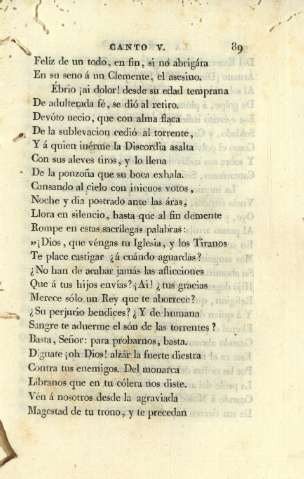 CANTO V. 89
Felíz de un todo, en fin, si no abrigára
En su seno á un Clemente, el asesino.
Ébrio ¡ai dolor! desde su edad temprana
De adulterada fé, se dió al retiro.
Devóto necio, que con alma flaca
De la sublevacion cedió al torrente,
Y á quien inérme la Discordia asalta
Con sus aleves tiros, y lo llena
De la ponzoña que su boca exhala.
Cansando al cielo con inicuos votos,
Noche y dia postrado ante las áras,
Llora en silencio, hasta que al fin demente
Rompe en estas sacrílegas palabras:
»¡Dios, que véngas tu Iglesia, y los Tiranos
Te place castigar ¿á cuándo aguardas?
¿No han de acabar jamás las aflicciones
Que á tus hijos envías? ¡Ai! ¿tus gracias
Merece sólo un Rey que te aborrece?
¿Su perjurio bendices? ¿Y de humana
Sangre te aduerme el són de las torrentes?
Basta, Señor: para probarnos, basta.
Dígnate ¡oh Dios! alzár la fuerte diestra
Contra tus enemigos. Del monarca
Líbranos que en tu cólera nos diste.
Vén á nosotros desde la agraviada
Magestad de tu trono, y te precedan